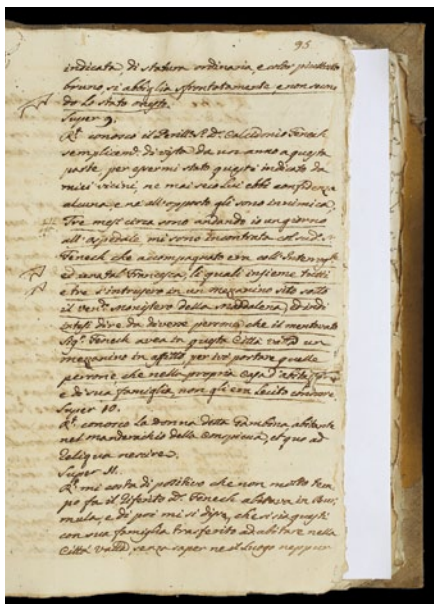 95
indicata, di statura ordinaria, e color piuttosto
bruno, si abbiglia sfrontatamente, e non secon
do lo stato onesto.
Super 9.
Rt conosco il Perill: Sr Dr Calcidonio Fenech
semplicemte di vista da un anno a questa
parte, per essermi stato questi indicato da
miei vicini, ne mai seco lui ebbi confidenza
alcuna, e ne all'opposto gli sono inimica,
Tre mesi circa sono andando io un giorno
all'ospedale mi sono incontrata col sudo
Fenech che accompagnato era coll'
ed una tal Francesca, le quali insieme tutti
e tre s'intrusero in un mezzanino sito sotto
il vene Monistero della Maddalena, ed indi
intesi dire da diverse persone, che il mentovato
Sigr Fenech avea in questa Città Valla un
mezzanino in affitto per ivi portare quelle
persone che nella propria casa d'
e di sua famiglia, non gli era lecito
Super 10.
Rt conosco la donna detta Gambina, abitante
nel manderaichio della et quo ad
reliqua nescire.
Super 11.
Rt mi costa di positivo che non molto tem
po fa il riferito Dr Fenech abitava in Bur
mula, e di poi mi si disse, che si sia questi
con sua famiglia trasferito ad abitare nella
Città Valla senza saper ne il luogo neppur